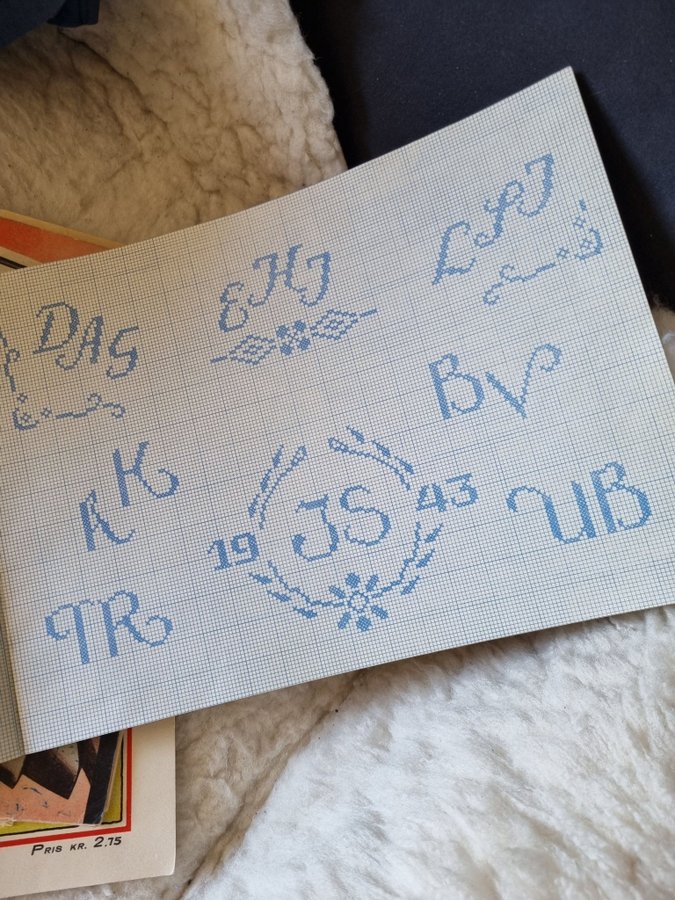 DAG
EHJ
LPJ
BV
AK
19 JS 43
UB
TR
PRIS KR. 2.75